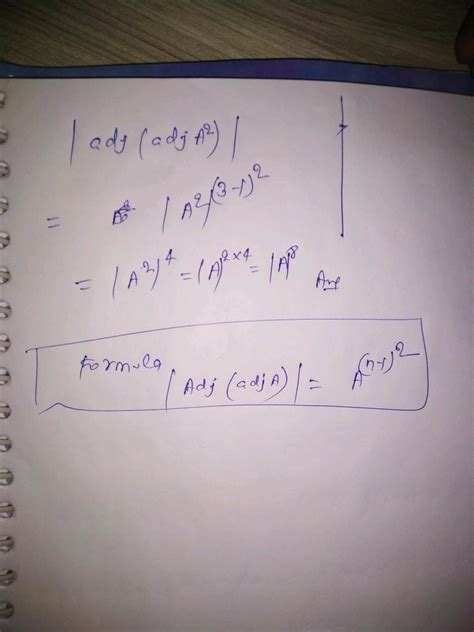 | adj (adj A²) |
= |A²|^(3-1)²
= |A²|⁴ = (A)^2×4 = |A|⁸ Ans
Formula
| Adj (adj A) | = A^(n-1)²